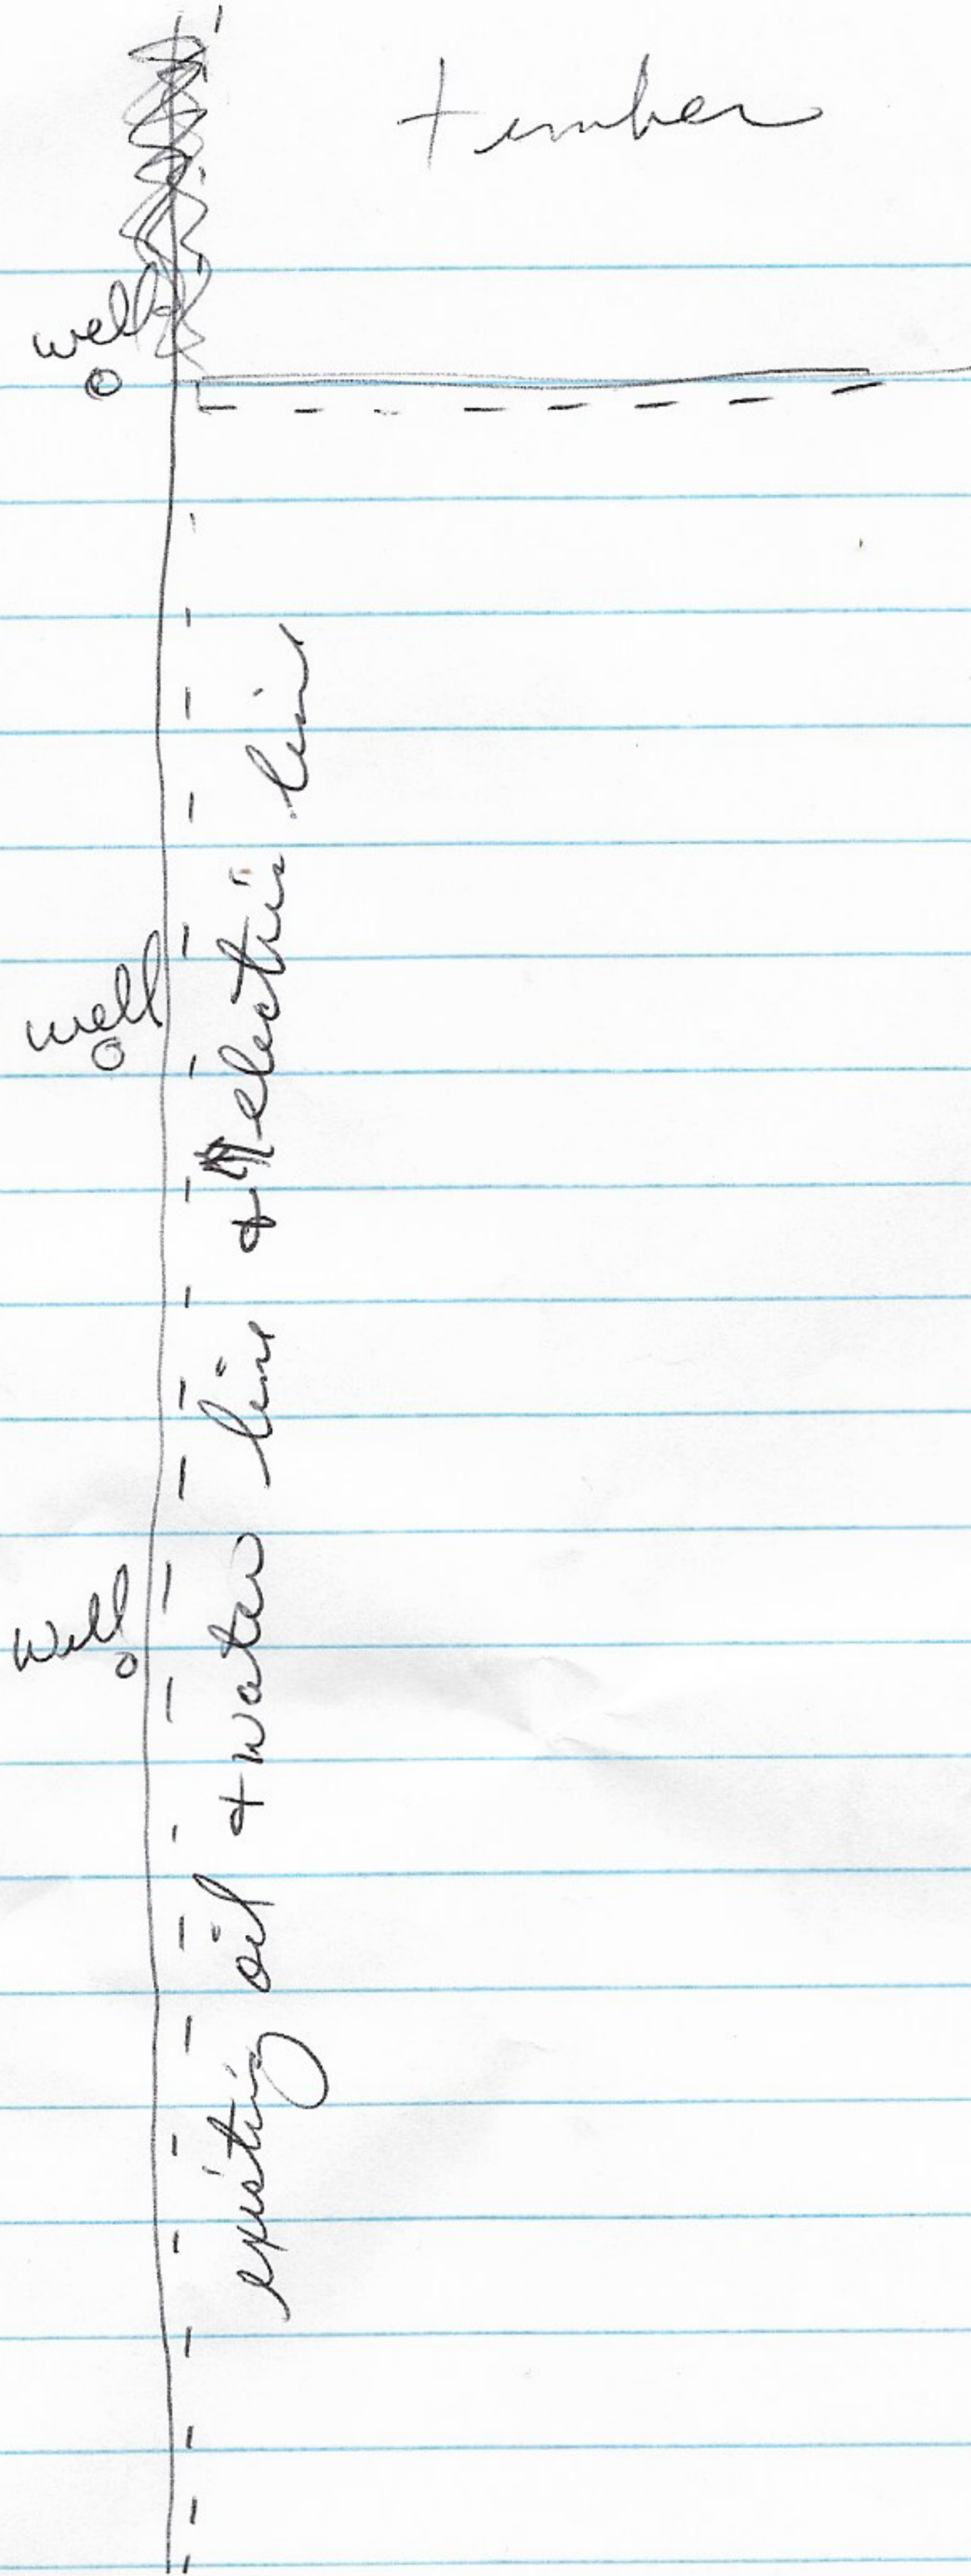 timber
well
well
well
existing oil + water line + electric line